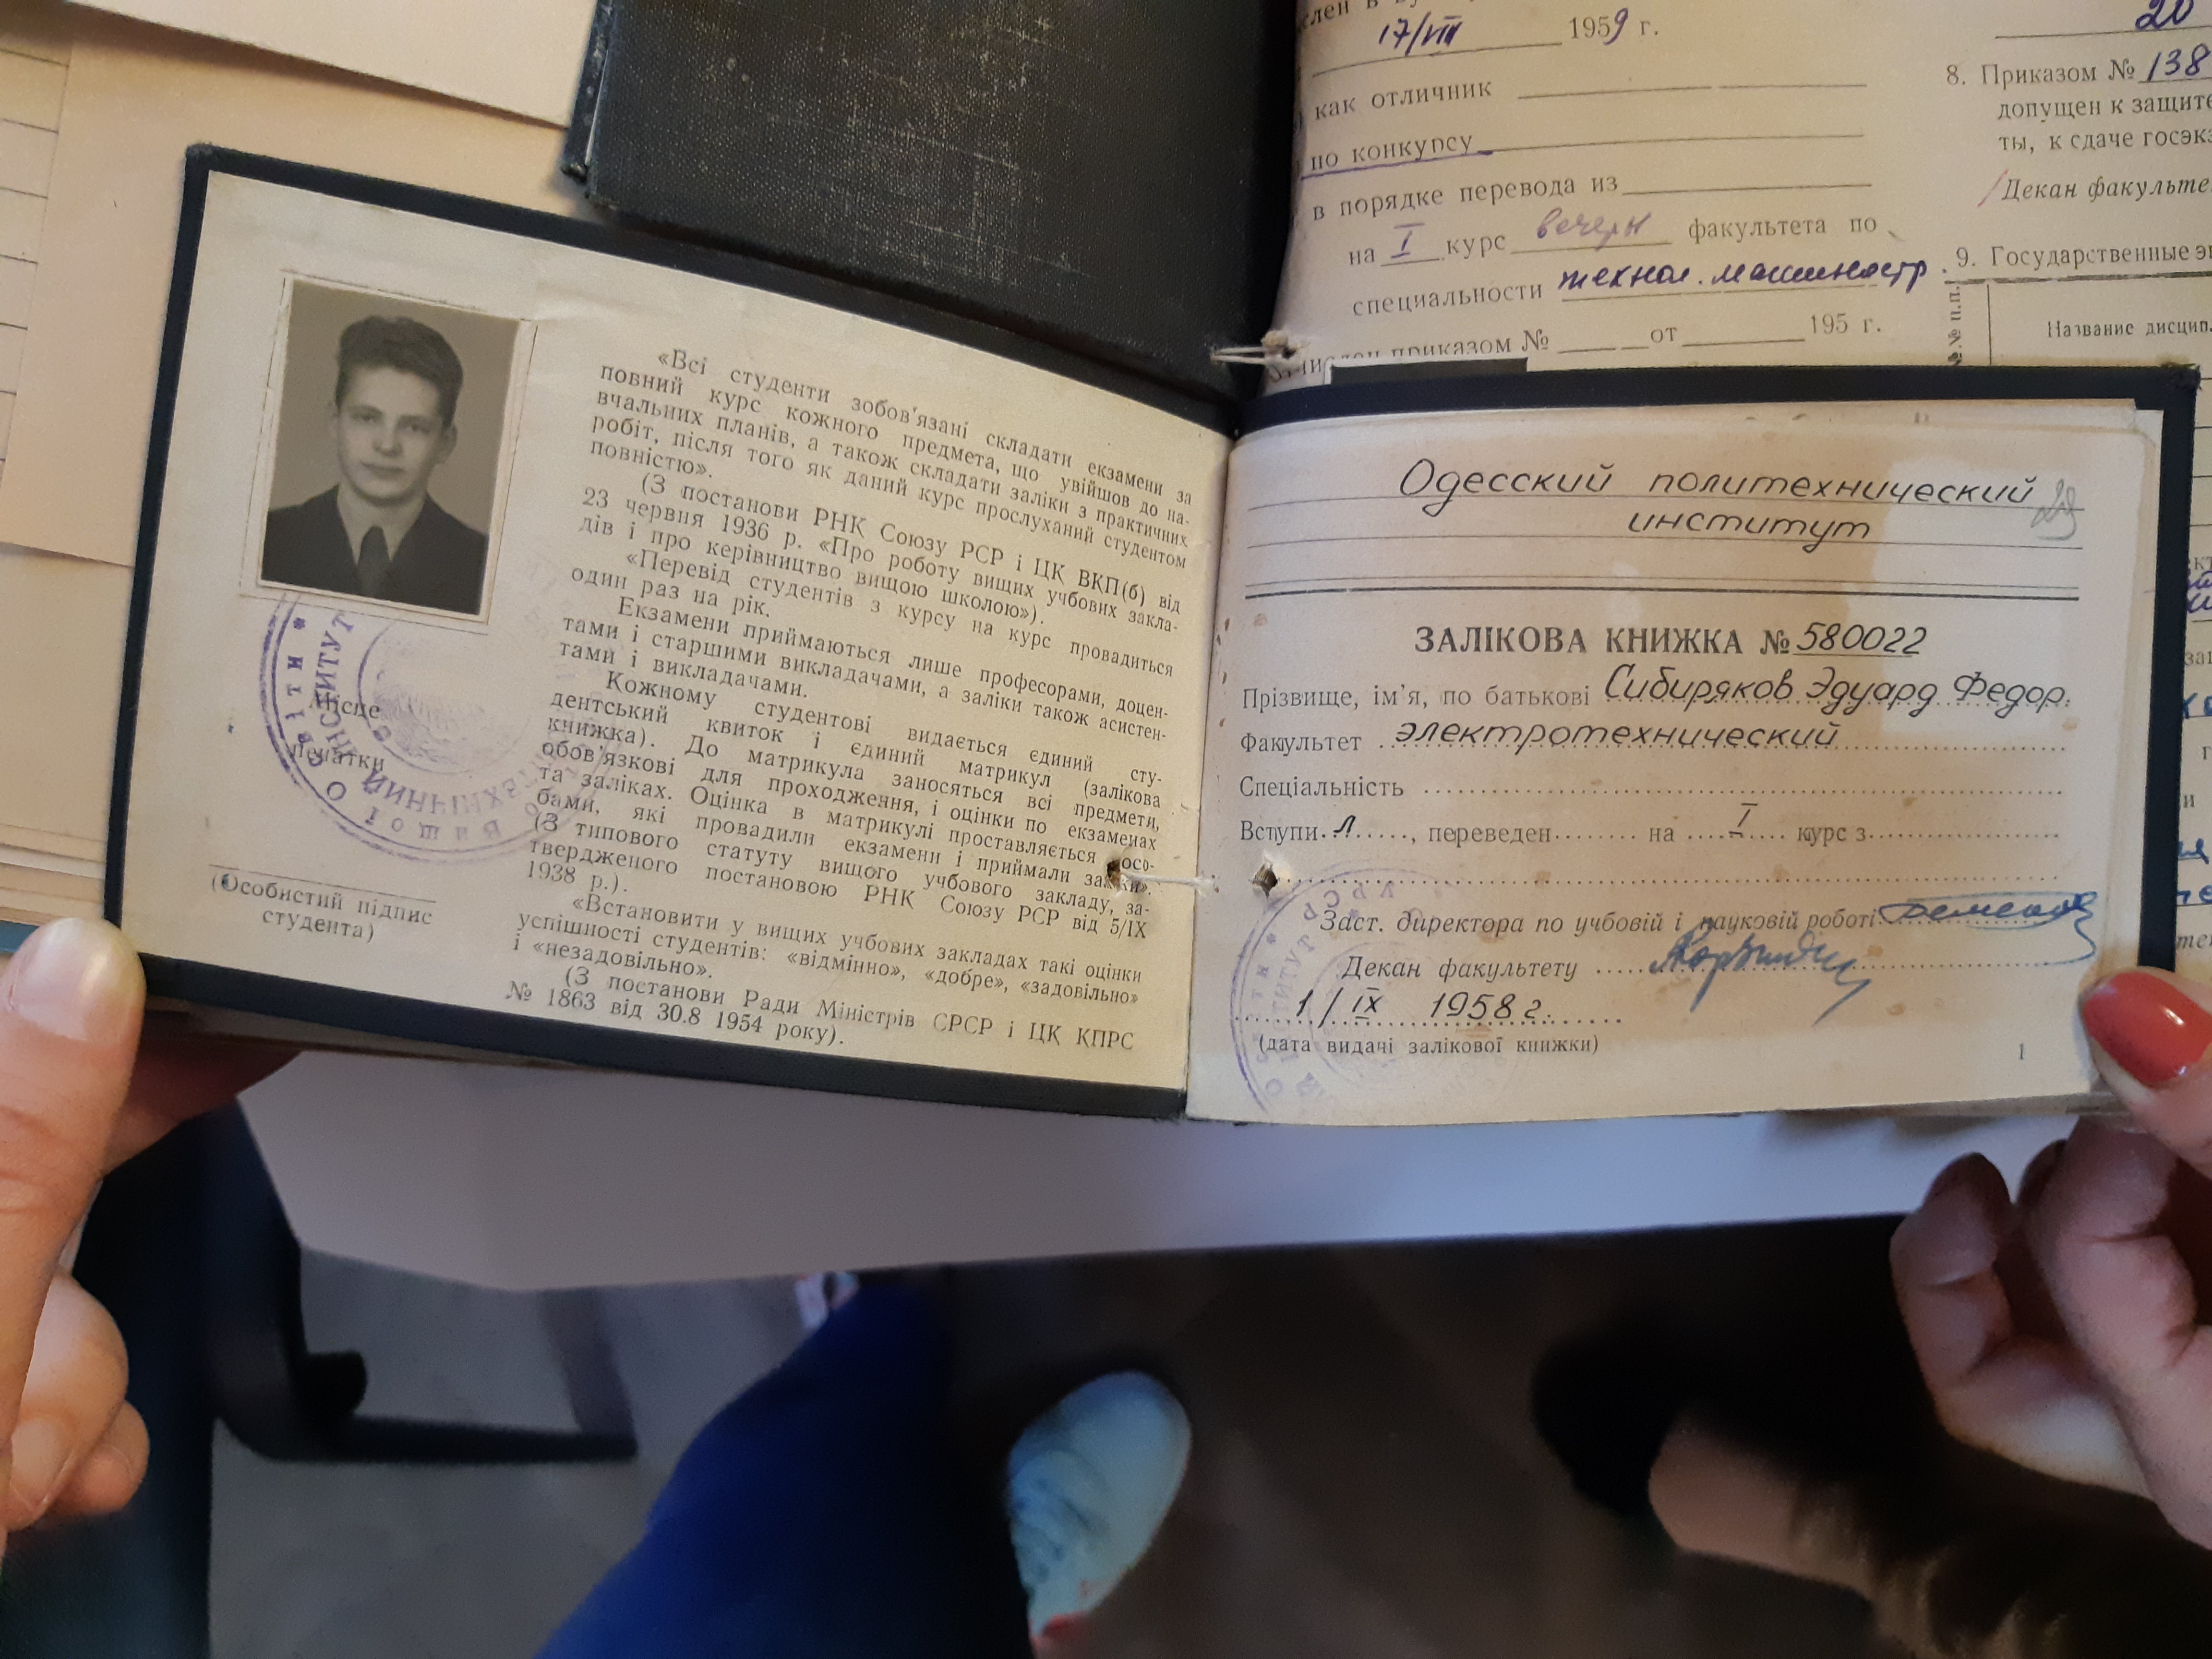 17/VIII 1959 г.
как отличник
по конкурсу
в порядке перевода из
на I курс вечерн факультета по
специальности технол. машиностр.
приказом № от 195 г.
20
8. Приказом № 138
допущен к защите
ты, к сдаче госэкз
Декан факульте
9. Государственные эк
№№ п.п.
Название дисцип
«Всі студенти зобов'язані складати екзамени за
повний курс кожного предмета, що увійшов до на-
вчальних планів, а також складати заліки з практичних
робіт, після того як даний курс прослуханий студентом
повністю».
(З постанови РНК Союзу РСР і ЦК ВКП(б) від
23 червня 1936 р. «Про роботу вищих учбових закла-
дів і про керівництво вищою школою»).
«Перевід студентів з курсу на курс провадиться
один раз на рік.
Екзамени приймаються лише професорами, доцен-
тами і старшими викладачами, а заліки також асистен-
тами і викладачами.
Кожному студентові видається єдиний сту-
дентський квиток і єдиний матрикул (залікова
книжка). До матрикула заносяться всі предмети,
обов'язкові для проходження, і оцінки по екзаменах
та заліках. Оцінка в матрикулі проставляється осо-
бами, які провадили екзамени і приймали заліки».
(З типового статуту вищого учбового закладу, за-
твердженого постановою РНК Союзу РСР від 5/IX
1938 р.).
«Встановити у вищих учбових закладах такі оцінки
успішності студентів: «відмінно», «добре», «задовільно»
і «незадовільно».
(З постанови Ради Міністрів СРСР і ЦК КПРС
№ 1863 від 30.8 1954 року).
Місце
печатки
(Особистий підпис
студента)
Одесский политехнический
институт
ЗАЛІКОВА КНИЖКА № 580022
Прізвище, ім'я, по батькові Сибиряков Эдуард Федор.
Факультет электротехнический
Спеціальність
Вступи л, переведен на I курс з
Заст. директора по учбовій і науковій роботі
Декан факультету
1/IX 1958 г.
(дата видачі залікової книжки)
1